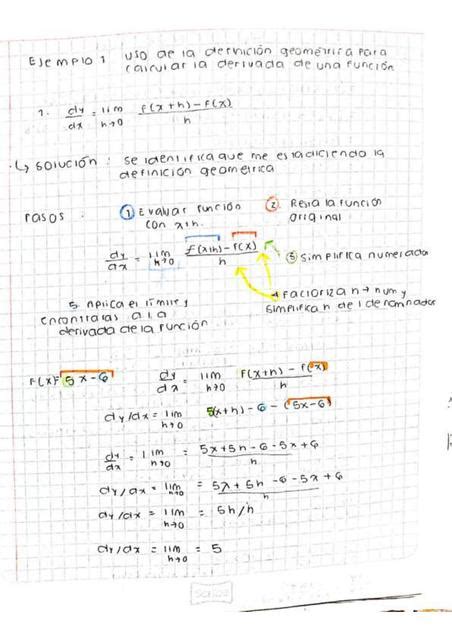 Ejemplo 1 uso de la definición geométrica para
calcular la derivada de una función
1. dy/dx = lim h→0 f(x+h)-f(x) / h
↳ solución: se identifica que me esta diciendo la
definición geometrica
pasos: ① Evaluar función
con x+h.
② Resta la función
original
dy/dx = lim h→0 f(x+h)-f(x) / h
③ simplifica numerador
4 Factoriza h → num y
simplifica h del denominador
5. Aplica el límite y
encontraras a la
derivada de la función.
F(x)= 5x-6 dy/dx = lim h→0 F(x+h) - f(x) / h
dy/dx = lim h→0 5(x+h) - 6 - (5x-6)
dy/dx = lim h→0 = 5x+5h-6-5x+6 / h
dy/dx = lim h→0 = 5x+5h-6-5x+6 / h
dy/dx = lim h→0 = 5h/h
dy/dx = lim h→0 = 5